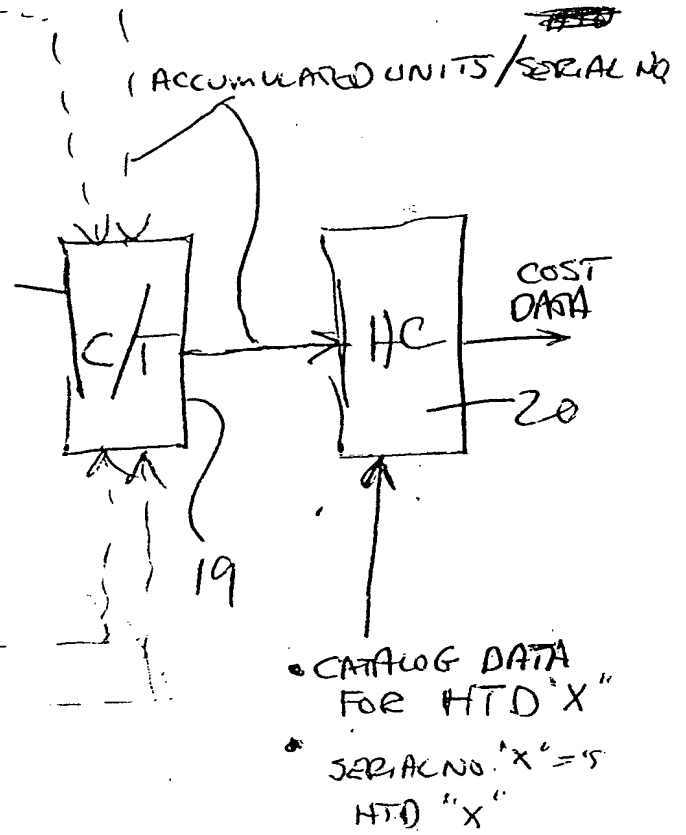 ACCUMULATED UNITS/SERIAL NO
C/T
HC
COST
DATA
20
19
• CATALOG DATA
FOR HTD "X"
• SERIAL NO. "X" =
HTD "X"